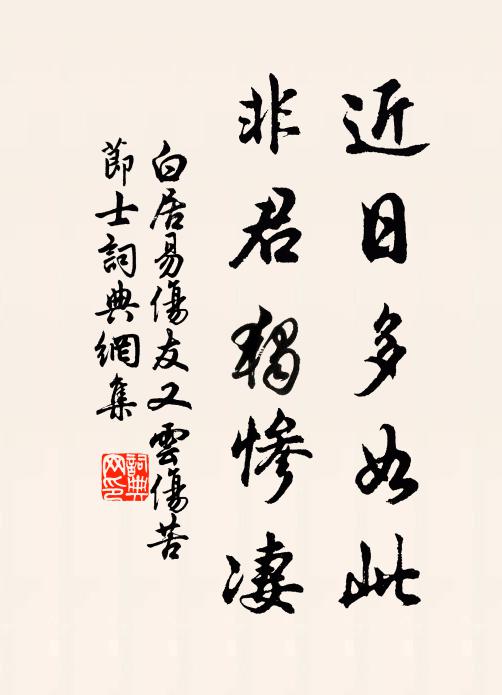 近日多如此
非君獨慘凄
白居易傷友又雲傷苦
節士詞典網集
詞典
网印